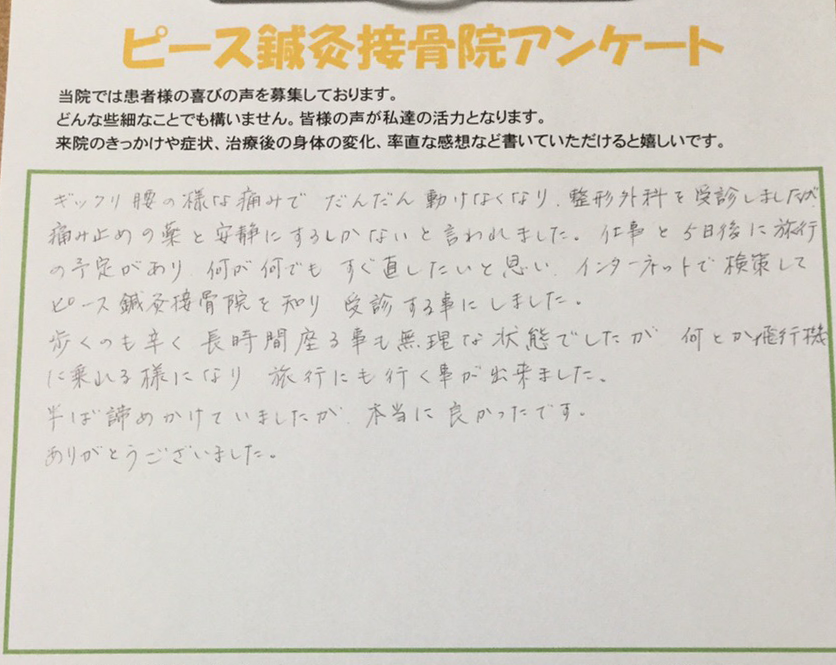 ピース鍼灸接骨院アンケート
当院では患者様の喜びの声を募集しております。
どんな些細なことでも構いません。皆様の声が私達の活力となります。
来院のきっかけや症状、治療後の身体の変化、率直な感想など書いていただけると嬉しいです。
ギックリ腰の様な痛みで だんだん動けなくなり、整形外科を受診しましたが、
痛み止めの薬と安静にするしかないと言われました。仕事と5日後に旅行
の予定があり 何が何でも すぐ直したいと思い、インターネットで検索して
ピース鍼灸接骨院を知り 受診する事にしました。
歩くのも辛く 長時間座る事も無理な状態でしたが 何とか飛行機
に乗れる様になり 旅行にも行く事が出来ました。
半ば諦めかけていましたが、本当に良かったです。
ありがとうございました。